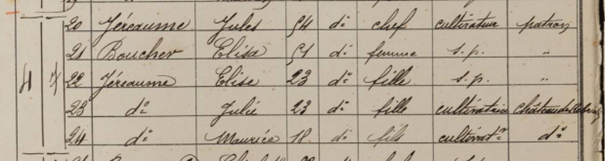 20 Jéreaume Jules 54 do chef cultivateur patron
4 7 21 Boucher Elisa 51 do femme s.p. "
22 Jéreaume Elise 23 do fille s.p. "
23 do Julie 23 do fille cultivatrice
24 do Maurice 18. do fils cultivatr do